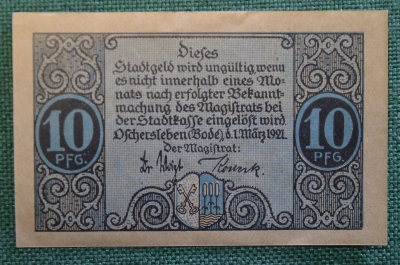 Dieses
Stadtgeld wird ungültig wenn
es nicht innerhalb eines Mo-
nats nach erfolgter Bekannt-
machung des Magistrats bei
der Stadtkasse eingelöst wird.
Oschersleben (Bode), d. 1. März 1921.
Der Magistrat:
10
PFG.
10
PFG.